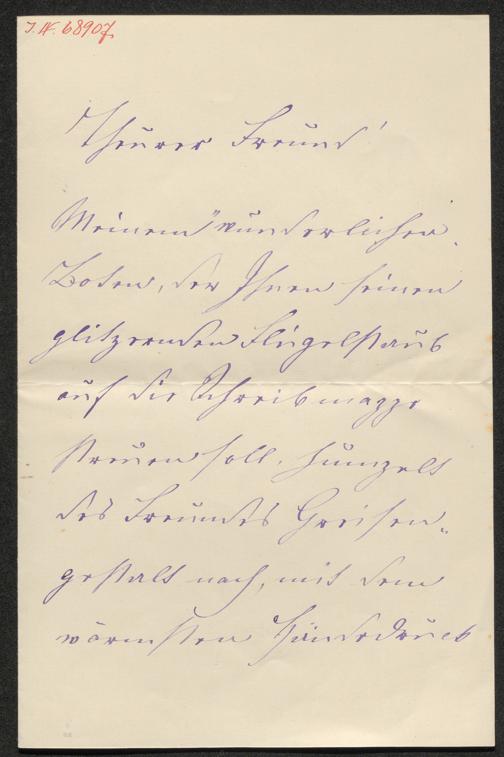 I. N. 68907
Theurer Freund!
Meinem wunderlichen
Boten, der Ihnen seinen
glitzernden Flügelstaub
auf die Schreibmappe
streuen soll, humpelt
des Freundes Greisen-
gestalt nach, mit dem
wärmsten Händedruck